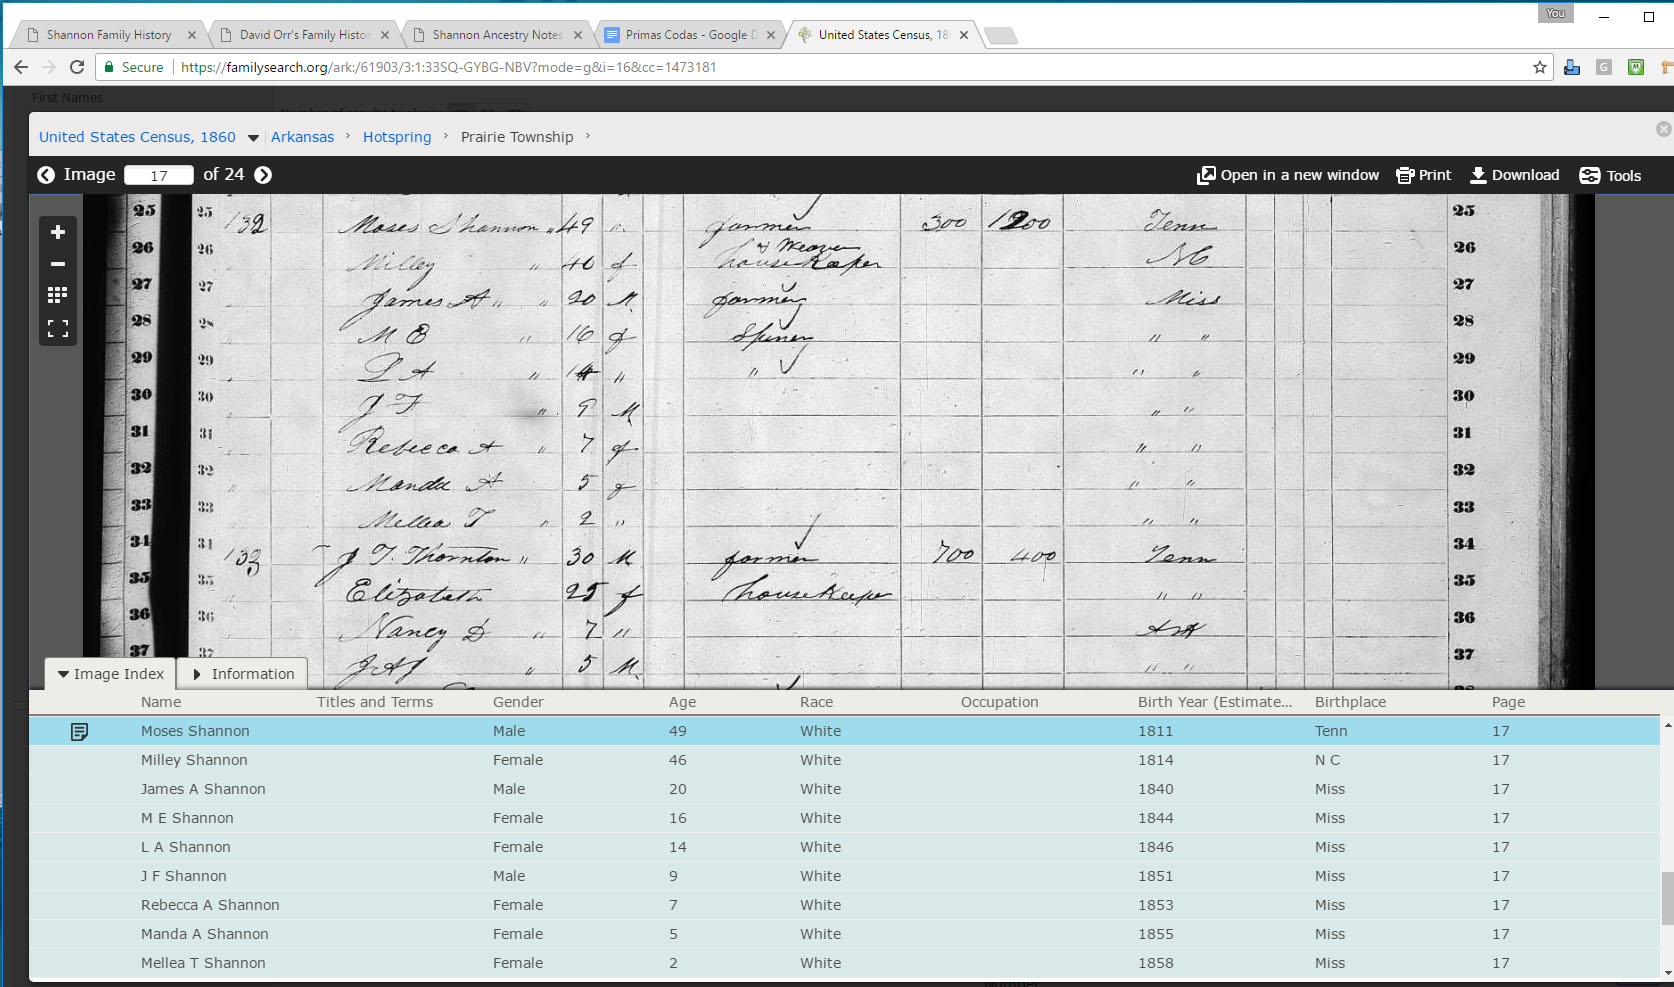 You
Shannon Family History
David Orr's Family Histor
Shannon Ancestry Notes
Primas Codas - Google D
United States Census, 18
Secure https://familysearch.org/ark:/61903/3:1:33SQ-GYBG-NBV?mode=g&i=16&cc=1473181
First Names
United States Census, 1860 Arkansas › Hotspring › Prairie Township ›
Image 17 of 24 Open in a new window Print Download Tools
25 25 132 Moses Shannon " 49 " farmer 300 1200 Tenn 25
& Weaver
26 26 Milley " 46 f housekeeper N C 26
27 27 James A " " 20 M farmer Miss 27
28 28 M E " 16 f Spiner " " 28
29 29 L A " 14 " " " " 29
30 30 J F " 9 M " " 30
31 31 Rebecca A " 7 f " " 31
32 32 Manda A 5 f " " 32
33 33 Mellea T " 2 " " " 33
34 34 133 J T. Thornton " 30 M farmer 700 400 Tenn 34
35 35 Elizabeth 25 f housekeeper " " 35
36 36 Nancy D " 7 " Ark 36
37 37 " 5 M " " 37
Image Index Information
Name Titles and Terms Gender Age Race Occupation Birth Year (Estimate... Birthplace Page
Moses Shannon Male 49 White 1811 Tenn 17
Milley Shannon Female 46 White 1814 N C 17
James A Shannon Male 20 White 1840 Miss 17
M E Shannon Female 16 White 1844 Miss 17
L A Shannon Female 14 White 1846 Miss 17
J F Shannon Male 9 White 1851 Miss 17
Rebecca A Shannon Female 7 White 1853 Miss 17
Manda A Shannon Female 5 White 1855 Miss 17
Mellea T Shannon Female 2 White 1858 Miss 17